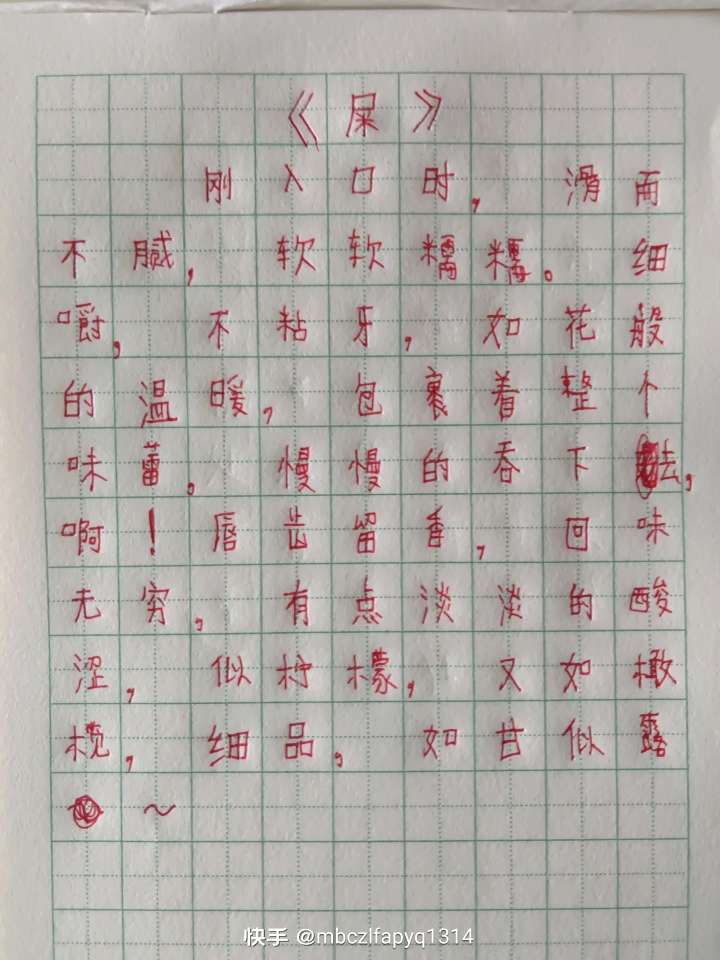 《屎》
刚入口时，滑而
不腻，软软糯糯。细
嚼，不粘牙，如花般
的温暖，包裹着整个
味蕾，慢慢的吞下去，
啊！唇齿留香，回味
无穷，有点淡淡的酸
涩，似柠檬，又如橄
榄，细品，如甘似露
～
快手 @mbczlfapyq1314